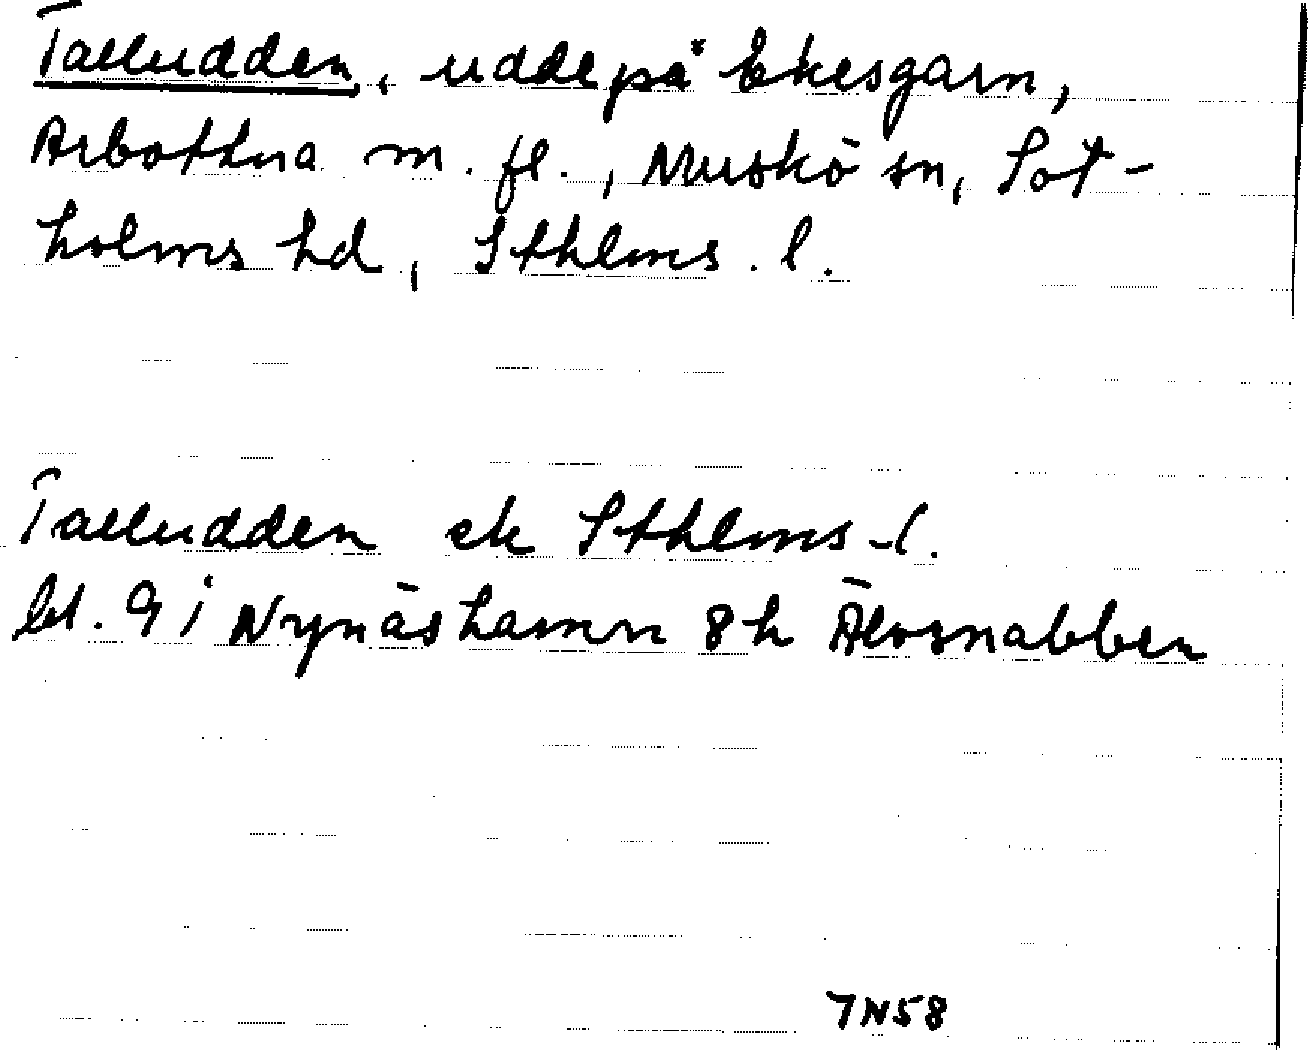 Talludden, udde på Ekesgarn,
Arbottna m. fl., Muskö sn, Sot-
holms hd, Sthlms. l.
Talludden ek Sthlms l.
bl. 9 i Nynäshamn 8h Älvsnabben
7N58